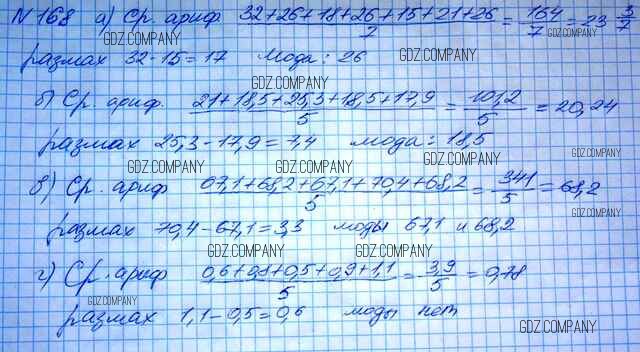 N 168 а) Ср. ариф 32+26+18+26+15+21+26/7 = 164/7 = 23 3/7
размах 32-15=17 Мода: 26
б) Ср. ариф. 21+18,5+25,3+18,5+17,9/5 = 101,2/5 = 20,24
размах 25,3-17,9=7,4 мода: 18,5
в) Ср. ариф 67,1+68,2+67,1+70,4+68,2/5 = 341/5 = 68,2
размах 70,4-67,1=3,3 моды 67,1 и 68,2
г) Ср. ариф 0,6+0,8+0,5+0,9+1,1/5 = 3,9/5 = 0,78
размах 1,1-0,5=0,6 моды нет
GDZ.COMPANY
GDZ.COMPANY
GDZ.COMPANY
GDZ.COMPANY
GDZ.COMPANY
GDZ.COMPANY
GDZ.COMPANY
GDZ.COMPANY
GDZ.COMPANY
GDZ.COMPANY
GDZ.COMPANY
GDZ.COMPANY
GDZ.COMPANY
GDZ.COMPANY